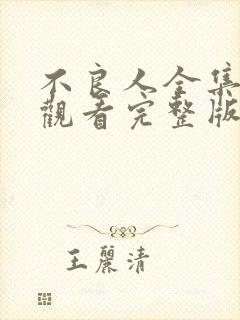 不良人全集
觀看完整版
王麗清